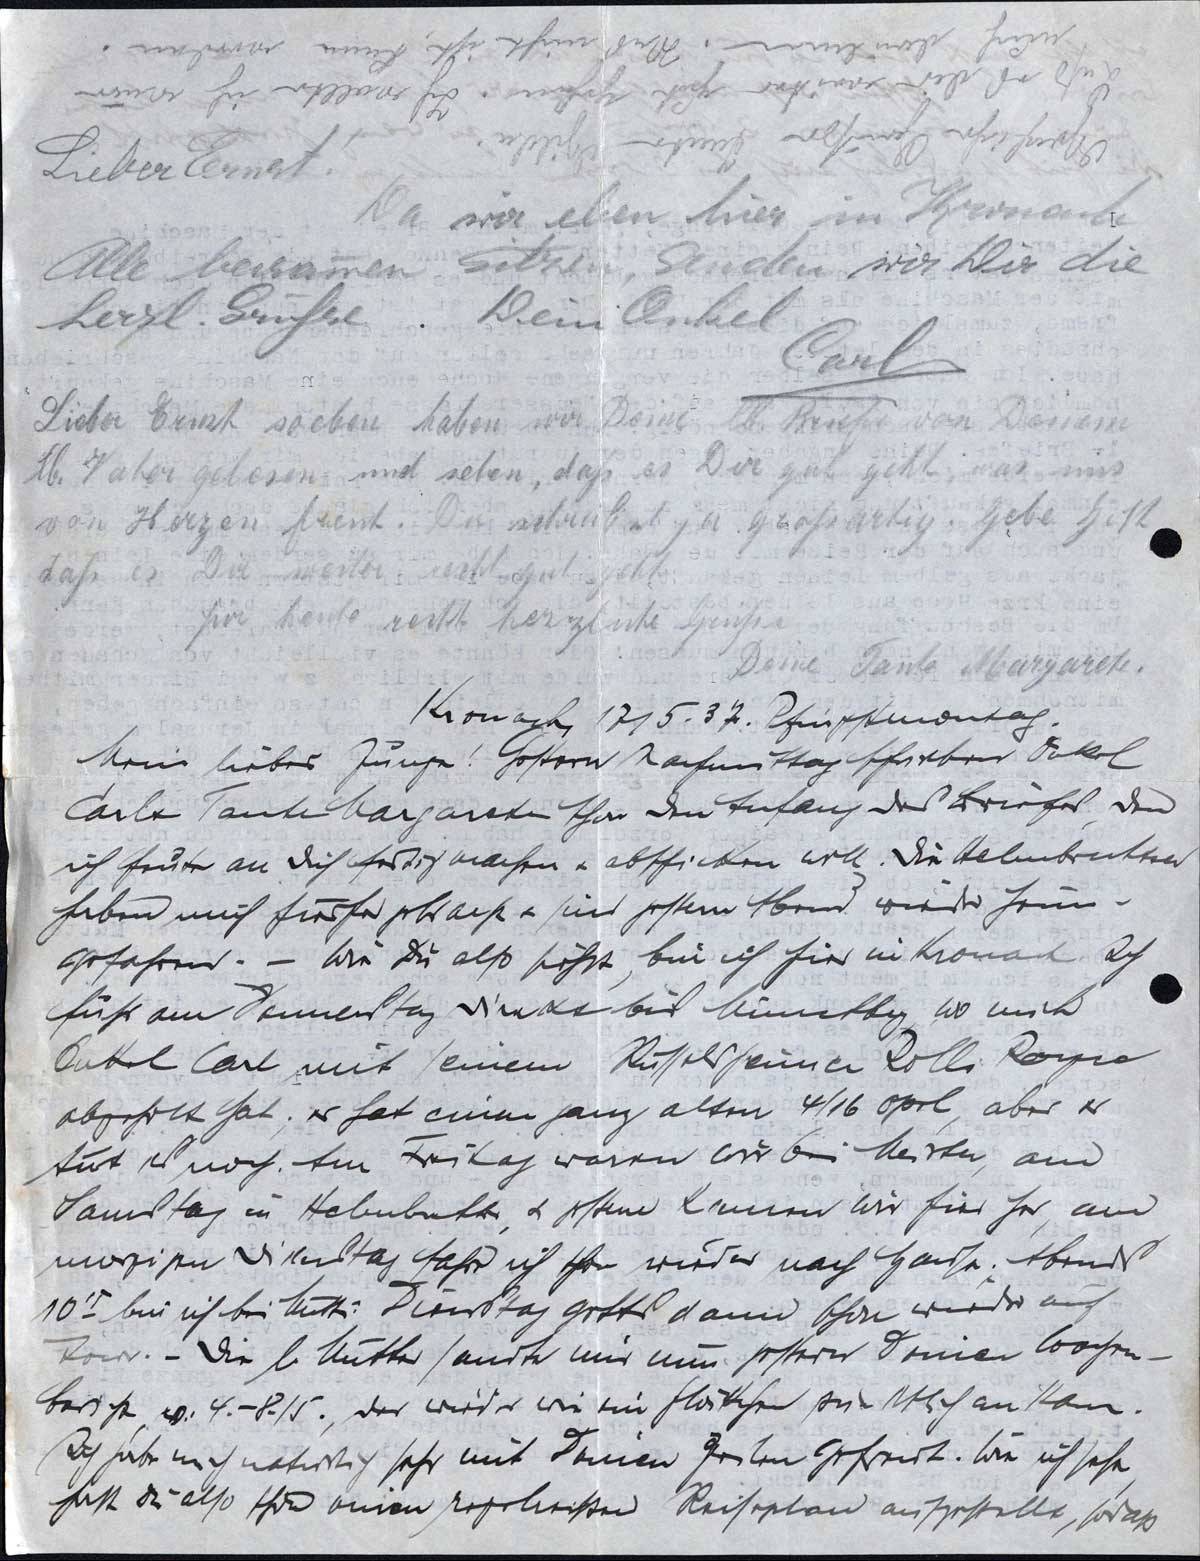 Herzliche Grüße Tante Hilde.
Lieber Ernst.
Da wir eben hier in Kronach
Alle beisammen sitzen, senden wir Dir die
herzl. Grüße. Dein Onkel
Carl
Lieber Ernst soeben haben wir Deine lb. Briefe von Deinem
lb. Vater gelesen und sehen, daß es Dir gut geht, was uns
von Herzen freut. Du schreibst ja großartig. Gebe Gott
daß es Dir weiter recht gut geht.
Für heute recht herzliche Grüße
Deine Tante Margarete.
Kronach, 17/5.37. Pfingstmontag.
Mein lieber Junge! Gestern Nachmittag schrieben Onkel
Carl & Tante Margarete schon den Anfang des Briefes, den
ich heute an Dich fertig machen & abschicken will. Die Helmbrechtser
haben mich hierher gebracht & sind gestern Abend wieder heim-
gefahren. – Wie Du also siehst, bin ich hier in Kronach. Ich
fuhr am Donnerstag direkt bis Münchbg, wo mich
Onkel Carl mit seinem Rüsselsheimer Rolls Royce
abgeholt hat; er hat einen ganz alten 4/16 Opel, aber er
tut es noch. Am Freitag waren wir bei, am
Samstag in Helmbrechts, & gestern kamen wir hier her, am
morgigen Dienstag fahre ich schon wieder nach Hause. Abends
10 bin ich bei Mutti. Dienstag geht's dann schon wieder auf
Tour. – Die l. Mutter sandte mir nun gestern Deinen Wochen-
bericht v. 4.–8./5., der wieder wie ein Glöckchen pünktlich ankam.
Ich habe mich natürlich sehr mit Deinen Zeilen gefreut. Wie ich sehe,
hast Du also schon einen regelrechten Reiseplan aufgestellt, sodaß